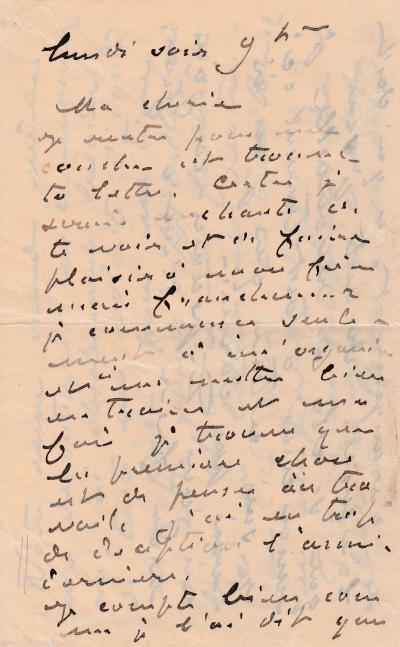 lundi soir 9 h
Ma cherie
je rentre pour me
coucher et trouve
ta lettre. Certes je
serais enchanté de
te voir et de faire
plaisir à mon frère
mais franchement
je commence seule-
ment à m'organiser
et à me mettre bien
en train et ma
foi je trouve que
la première chose
est de penser au tra
vail, j'ai eu trop
de déceptions l'année
dernière.
je compte bien com
me je l'ai dit que